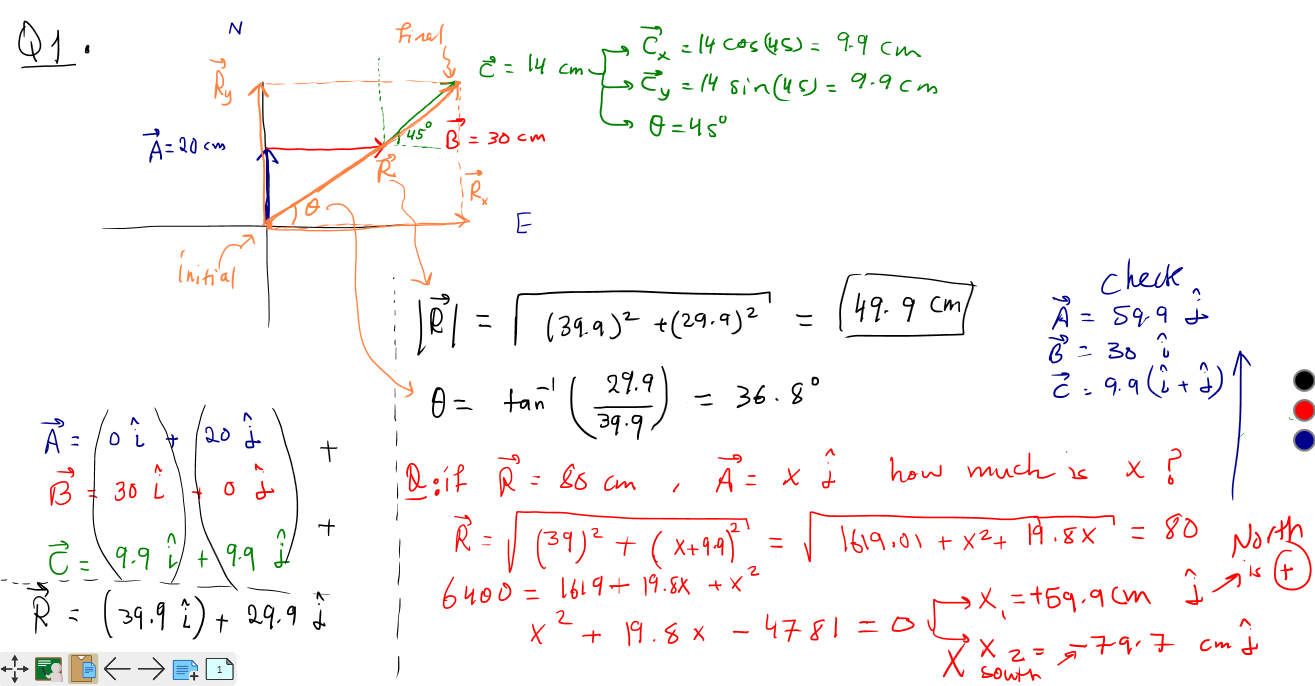 Q1.
N
Final
R⃗y
C⃗ = 14 cm
C⃗x = 14 cos(45) = 9.9 cm
C⃗y = 14 sin(45) = 9.9 cm
θ = 45°
A⃗ = 20 cm
45°
B⃗ = 30 cm
R⃗
R⃗x
θ
E
initial
|R⃗| = √((39.9)² + (29.9)²) = 49.9 cm
θ = tan⁻¹(29.9/39.9) = 36.8°
check
A⃗ = 59.9 ĵ
B⃗ = 30 î
C⃗ = 9.9 (î + ĵ)
A⃗ = 0 î + 20 ĵ +
B⃗ = 30 î + 0 ĵ
+
C⃗ = 9.9 î + 9.9 ĵ
R⃗ = (39.9 î) + 29.9 ĵ
Q: if R⃗ = 80 cm , A⃗ = x ĵ how much is x ?
R⃗ = √((39)² + (x+9.9)²) = √(1619.01 + x² + 19.8x) = 80
6400 = 1619 + 19.8x + x²
x² + 19.8x - 4781 = 0
x₁ = +59.9 cm ĵ
North is +
X x₂ = -79.7 cm ĵ
south
1